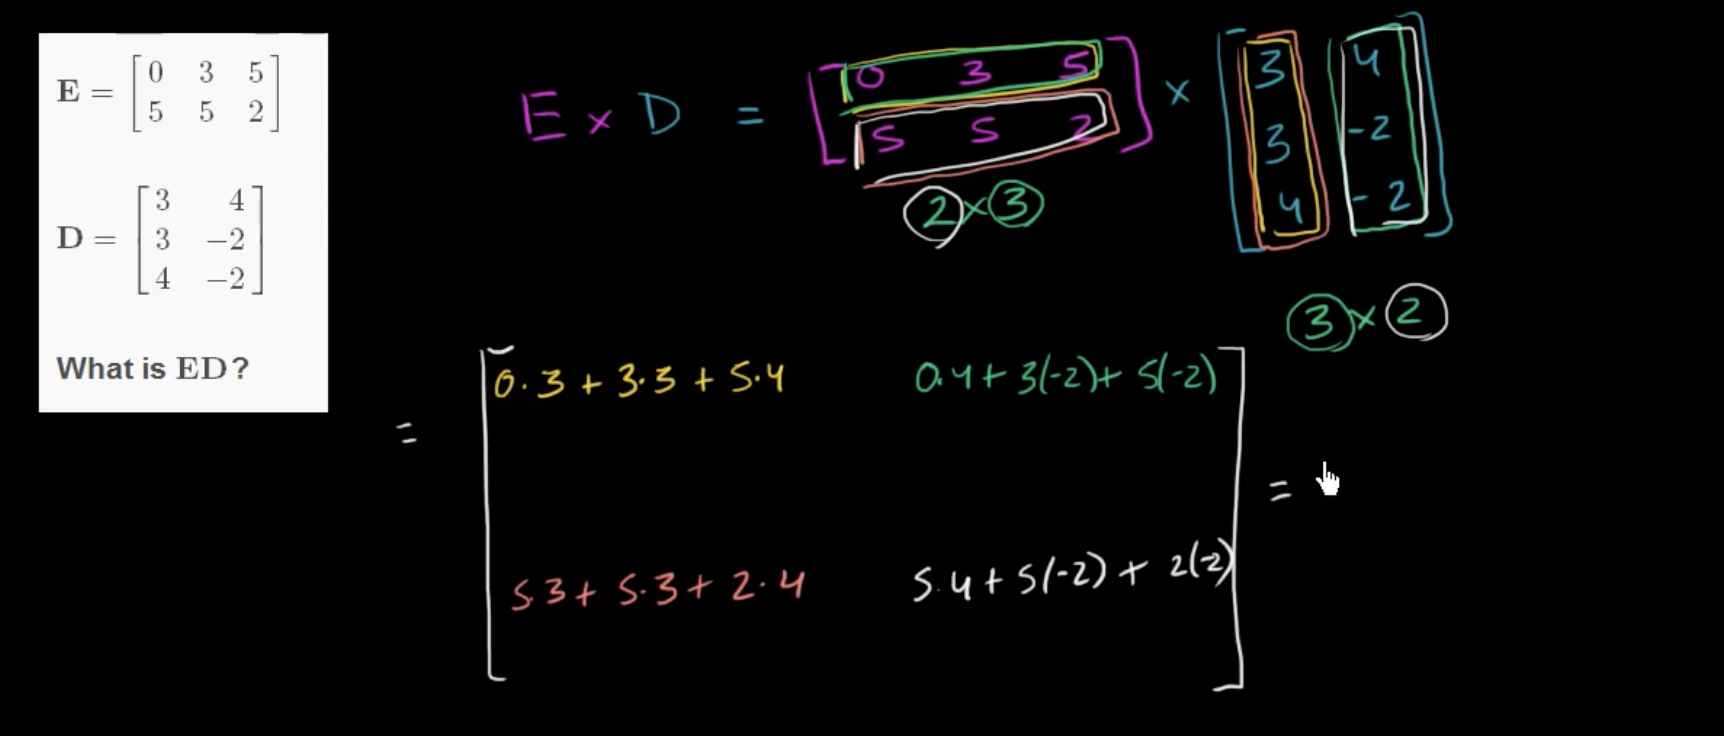 E = [ 0 3 5
5 5 2 ]
D = [ 3 4
3 −2
4 −2 ]
What is ED?
E × D = [ 0 3 5
5 5 2 ] × [ 3 4
3 -2
4 -2 ]
2×3
3×2
= [ 0·3 + 3·3 + 5·4 0·4 + 3(-2) + 5(-2)
5·3 + 5·3 + 2·4 5·4 + 5(-2) + 2(-2) ] =